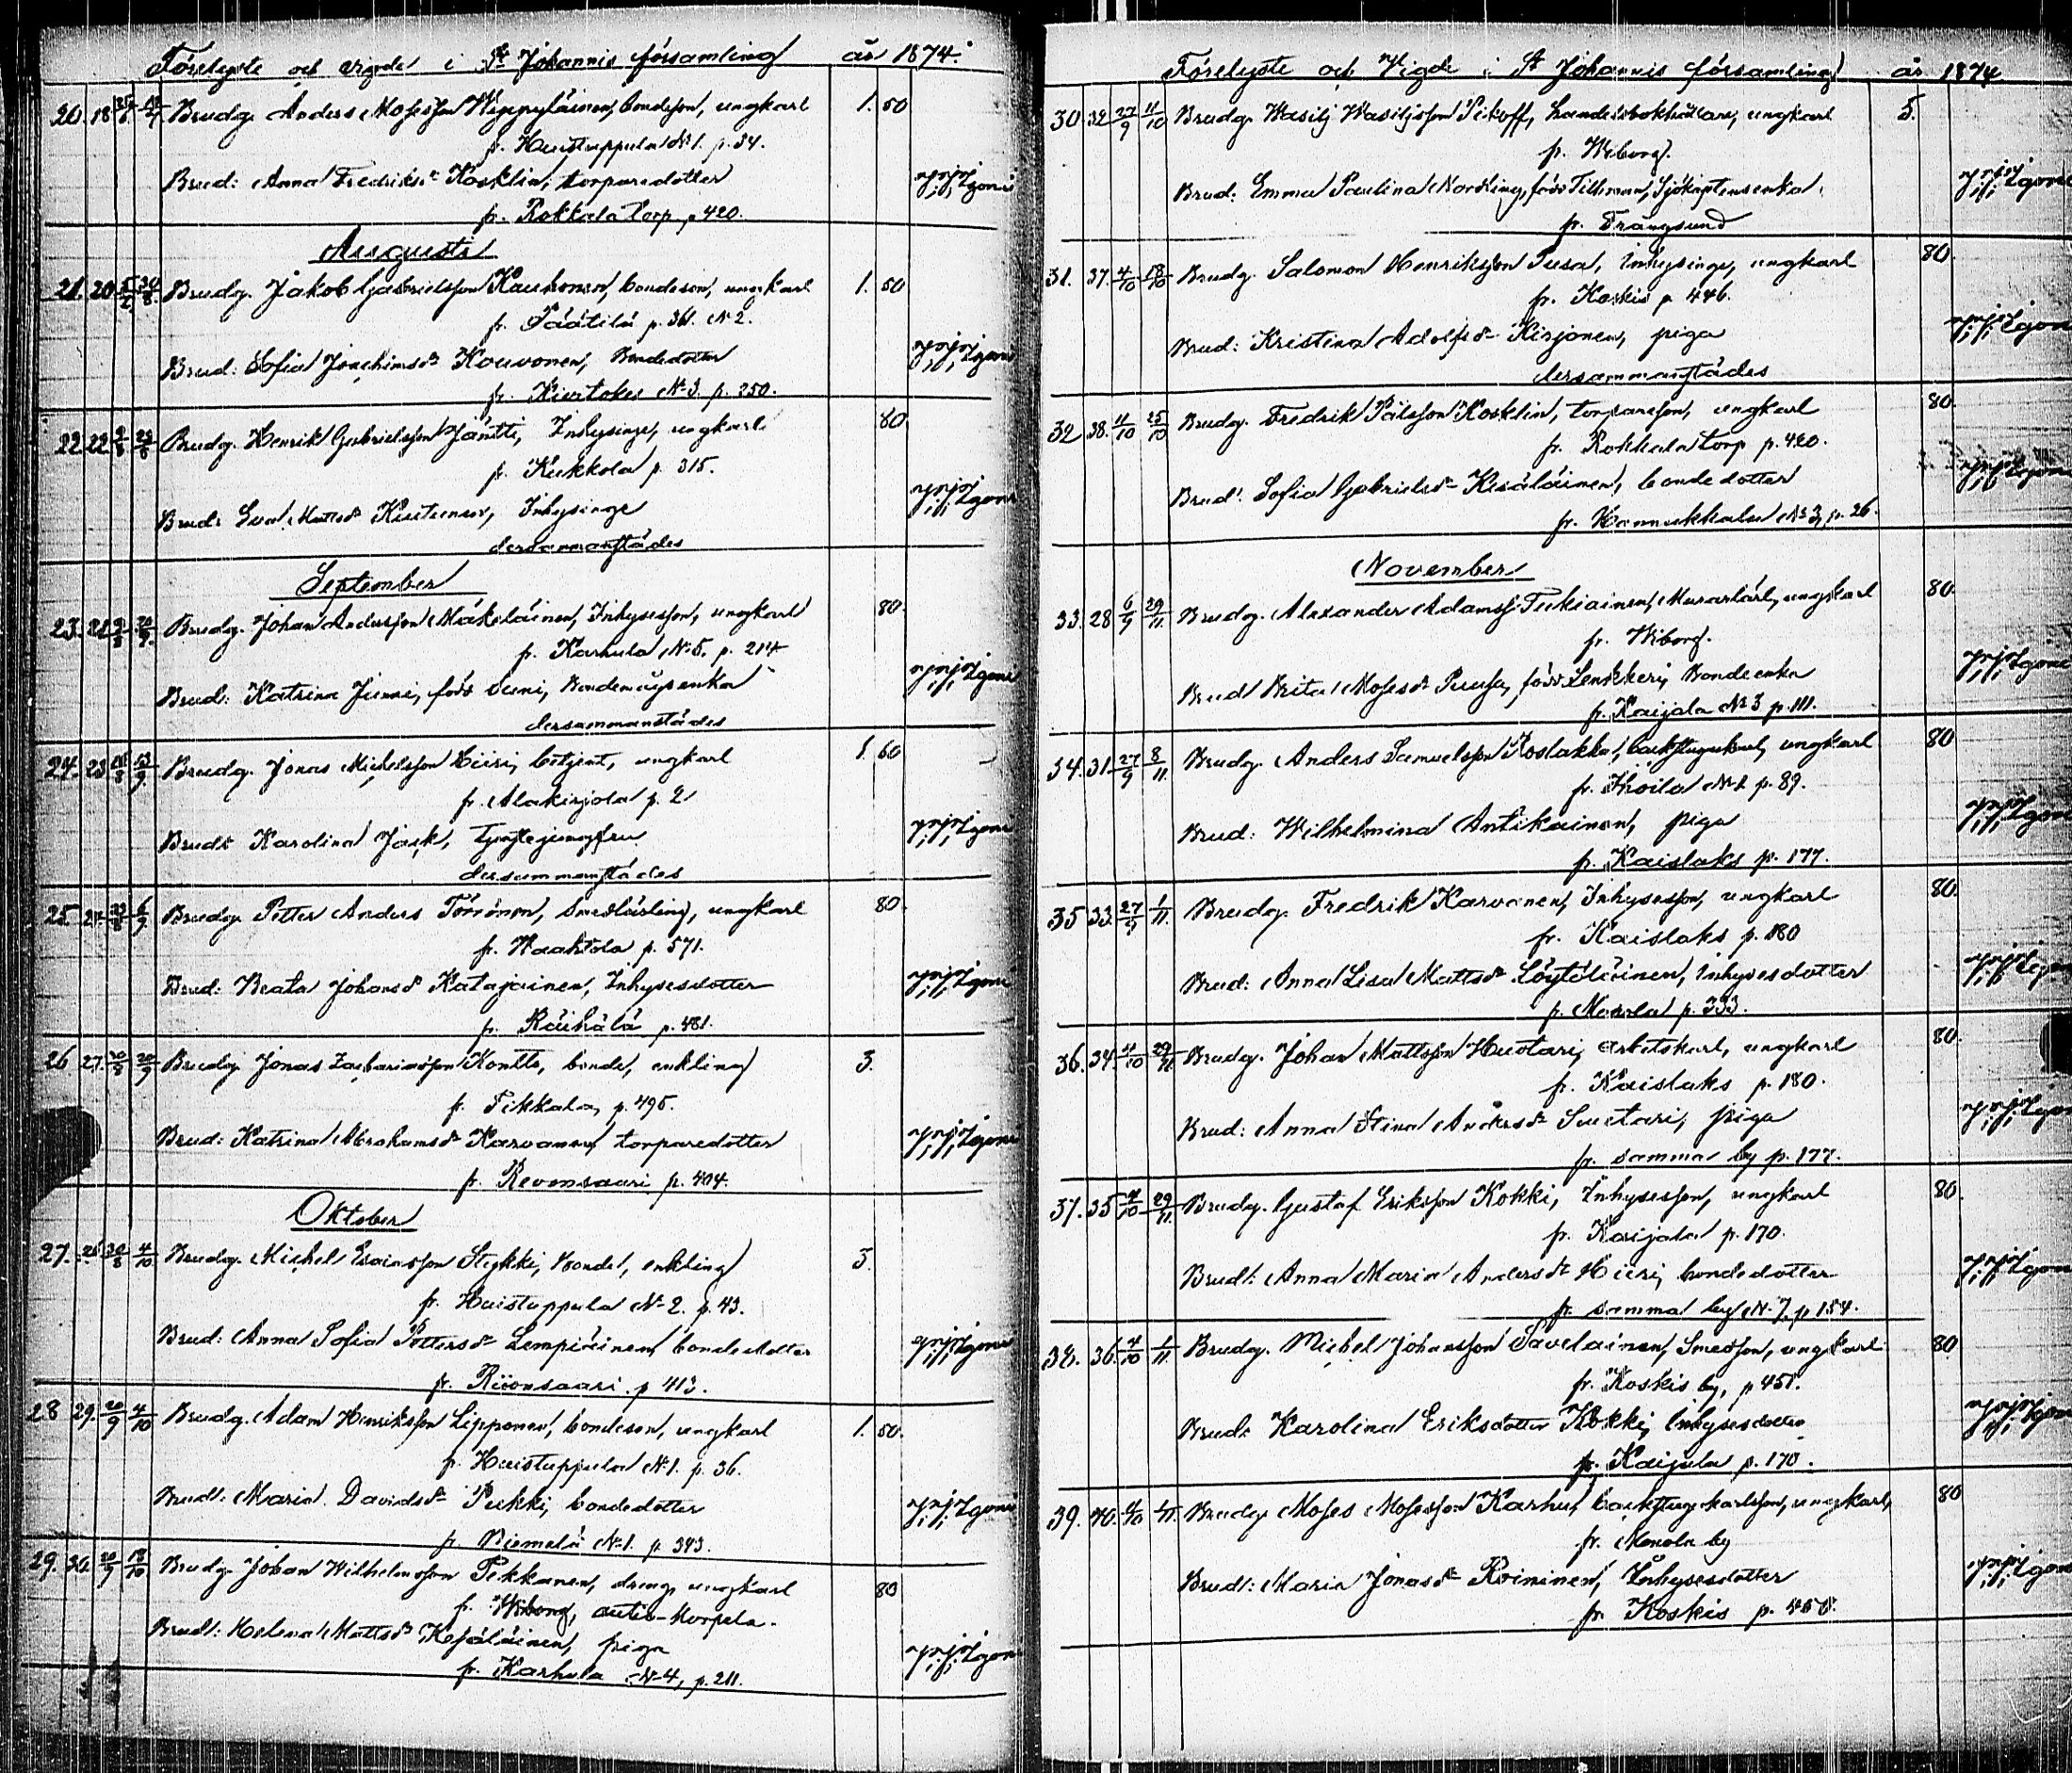 Förelyste och vigde i St Johannis församling år 1874.
20. 18 Brudg. Anders Mosesson Weppyläinen, bondeson, ungkarl 1. 50
fr. Huistuppula No 1. p. 34.
Brud: Anna Fredriksdr Kosklin, torparedotter
fr. Rokkala torp p. 420.
Augusti
21. 20 Brudg. Jakob Gabrielsson Kauhonen, bondeson, ungkarl 1. 50
fr. Päätilä p. 361. No 2.
Brud: Sofia Joachimsdr Kouvonen, Bondedotter
fr. Kiertokes No 3. p. 250.
22. 22 Brudg. Henrik Gabrielsson Jäntti, Inhysinge, ungkarl 80.
fr. Kukkola p. 315.
Brud: Eva Mattsdr Kiutunen, Inhysinge
dersammanstädes
September
23. 21 Brudg. Johan Andersson Mäkeläinen, Inhysesson, ungkarl 80.
fr. Karhula No 5. p. 214
Brud: Katrina Junni, född Suni, Bondemågsenka
dersammanstädes
24. 23 Brudg. Jonas Michelsson Hiiri, betjent, ungkarl 1. 60
fr. Alakirjola p. 2
Brud: Karolina Jack, tjenstejungfru
dersammanstädes
25. 24. Brudg. Petter Anders Törrönen, Smedlärling, ungkarl 80.
fr. Waahtola p. 571.
Brud: Beata Johansdr Katajainen, Inhysesdotter
fr. Räihälä p. 481.
26 27. 20/9 Brudg. Jonas Zachariasson Kontto, bonde, enkling 3.
fr. Tikkala, p. 495.
Brud: Katrina Abrahamsdr Karvanen, torparedotter
fr. Revonsaari p. 404.
Oktober
27. 30/8 4/10 Brudg. Michel Esaiasson Stykki, Bonde, enkling 3.
fr. Huistuppula No 2. p. 43.
Brud: Anna Sofia Pettersdr Lempiäinen, bondedotter
fr. Rivonsaari p. 413.
28 29. 20/9 4/10 Brudg. Adam Henriksson Lipponen, bondeson, ungkarl 1. 50.
fr. Huistuppula No 1. p. 36.
Brud: Maria Davidsdr Pukki, bondedotter
fr. Niemelä No 1. p. 343.
29. 30. 20/9 18/10 Brudg. Johan Wilhelmsson Pekkanen, dreng, ungkarl 80
fr. Wiborg, autio-Korpela.
Brud: Helena Mattsdr Kesäläinen, piga
fr. Karhula No 4, p. 211.
Förelyste och Vigde i St Johannis församling år 1874
30. 32 27/9 11/10 Brudg. Wasilj Wasiljsson Pitkoff, handelsbokhållare, ungkarl 5.
fr. Wiborg.
Brud: Emma Paulina Nordling, född Tillman, Sjökaptensenka
fr. Trångsund
31. 37. 4/10 18/10 Brudg. Salomon Henriksson Pusa, Inhysinge, ungkarl 80.
fr. Koskis p. 446.
Brud: Kristina Adolfsdr Kirjonen, piga
dersammanstädes
32 38. 11/10 25/10 Brudg. Fredrik Pålsson Kosklin, torpareson, ungkarl 80.
fr. Rokkala torp p. 420.
Brud: Sofia Gabrielsdr Kesäläinen, bondedotter
fr. Hannukkala No 3, p. 26.
November
33. 28 6/9 29/11. Brudg. Alexander Adamss. Tukiainen, Murarlärl., ungkarl 80.
fr. Wiborg.
Brud Brita Mosesdr Puusa, född Lenkkeri, Bondeenka
fr. Kaijala No 3 p. 111.
34. 31. 27/9 8/11. Brudg. Anders Samuelsson Roslakka, backstugukarl, ungkarl 80
fr. Ihoila No 2 p. 89.
Brud: Wilhelmina Antikainen, piga
fr. Kaislaks p. 177.
35 33. 27/9 1/11. Brudg. Fredrik Karvanen, Inhysesson, ungkarl 80.
fr. Kaislaks p. 180
Brud: Anna Lisa Mattsdr Löytäläinen, inhysesdotter
fr. Monola p. 333.
36. 34. 4/10 29/11. Brudg. Johan Mattsson Huotari, arbetskarl, ungkarl 80.
fr. Kaislaks p. 180.
Brud: Anna Stina Andersdr Suutari, piga
fr. samma by p. 177.
37. 35 4/10 29/11. Brudg. Gustaf Eriksson Kokki, Inhysesson, ungkarl 80.
fr. Kaijala p. 170.
Brud: Anna Maria Andersdr Hiiri, bondedotter
fr. samma by No 7. p 154.
38. 36. 4/10 1/11. Brudg. Michel Johansson Savelainen, Smedson, ungkarl 80.
fr. Koskis by, p 451.
Brud: Karolina Eriksdotter Kokki, Inhysesdotter
fr. Kaijala p. 170.
39. 40. Brudg. Moses Mosesson Karhu, backstugukarlsson, ungkarl 80
fr. Monola by
Brud: Maria Jonasdr Roininen, Inhysesdotter
fr. Koskis p. 458.